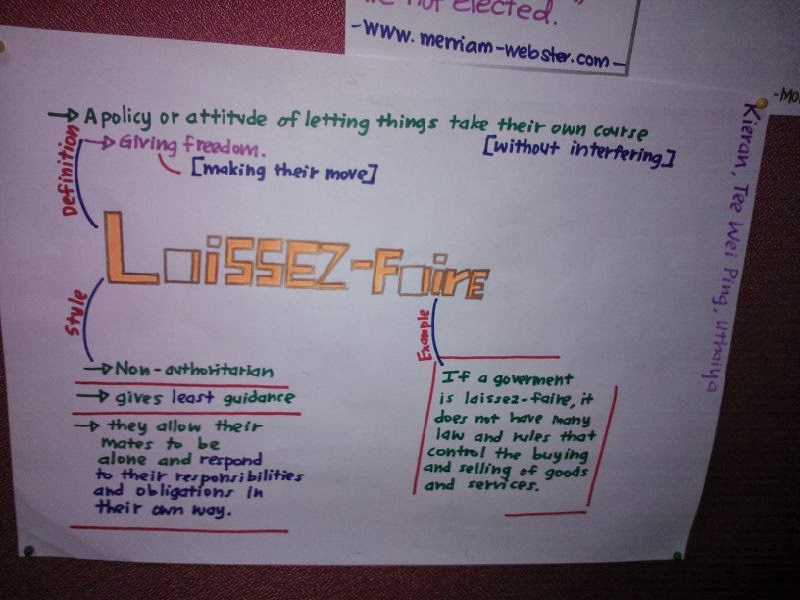 not elected."
-www.merriam-webster.com-
→ A policy or attitude of letting things take their own course
[without interfering]
→ Giving freedom.
[making their move]
Definition
LaiSSEZ-FairE
Style
→ Non-authoritarian
→ gives least guidance
→ they allow their
mates to be
alone and respond
to their responsibilities
and obligations in
their own way.
Example
If a goverment
is laissez-faire, it
does not have many
law and rules that
control the buying
and selling of goods
and services.
Kieran, Tee Wei Ping, Uthaiya